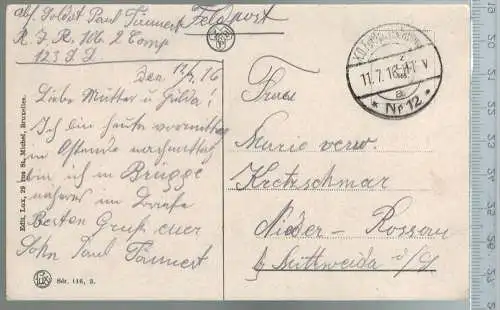 abs. Soldat Paul Tännert
Feldpost
R. J. R. 106. 2 Comp
123 J. D.
Den 12/7. 16
Liebe Mutter u Hulda!
Ich bin heute vormittag
in Ostende nachmittag
bin ich in Brügge
näheres im Briefe
Besten Gruß euer
Sohn Paul Tännert
Frau
Marie verw.
Kretzschmar
Nieder-Rossau
b/ Mittweida i/S.
11.7.16
V
a
* Nr 12 *
Edit. Lux, 29 rue St. Michel, Bruxelles.
LUX
Sér. 116, 3.